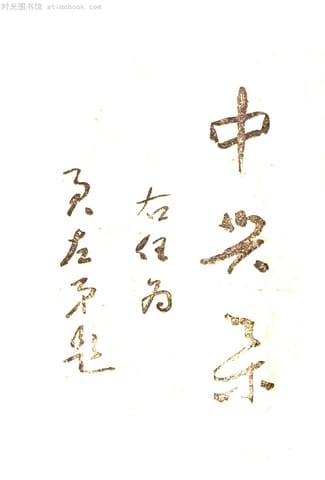 时光图书馆 atimebook.com
中兴
右任为
左弟题